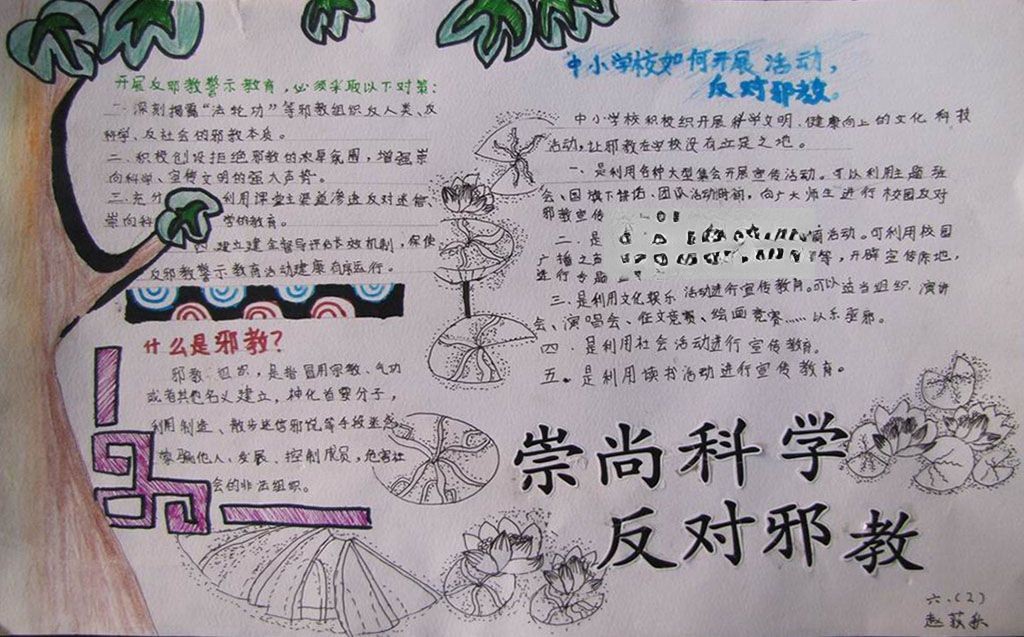 开展反邪教警示教育，必须采取以下对策：
一、深刻揭露“法轮功”等邪教组织反人类、反
科学、反社会的邪教本质。
二、积极创设拒绝邪教的浓厚氛围，增强崇
向科学、宣传文明的强大声势。
三、充分 利用课堂主渠道渗透反对迷信、
崇向科 学的教育。
四、建立健全督导评估长效机制，保使
反邪教警示教育活动健康有序运行。
什么是邪教？
邪教组织，是指冒用宗教、气功
或者其他名义建立，神化首要分子，
利用制造、散步迷信邪说等手段迷惑、
骗他人，发展、控制成员，危害社
会的非法组织。
中小学校如何开展活动，
反对邪教。
中小学校积极组织开展科学文明、健康向上的文化科技
活动，让邪教在学校没有立足之地。
一、是利用各种大型集会开展宣传活动。可以利用主题班
会、国旗下讲话、团队活动时间，向广大师生进行校园反对
邪教宣传
二、是 活动。可利用校园
广播之声 等，开辟宣传阵地，
进行专题
三、是利用文化娱乐活动进行宣传教育。可以适当组织演讲
会、演唱会、征文竞赛、绘画竞赛……以乐驱邪。
四、是利用社会活动进行宣传教育。
五。是利用读书活动进行宣传教育。
崇尚科学
反对邪教
六.(2)
赵